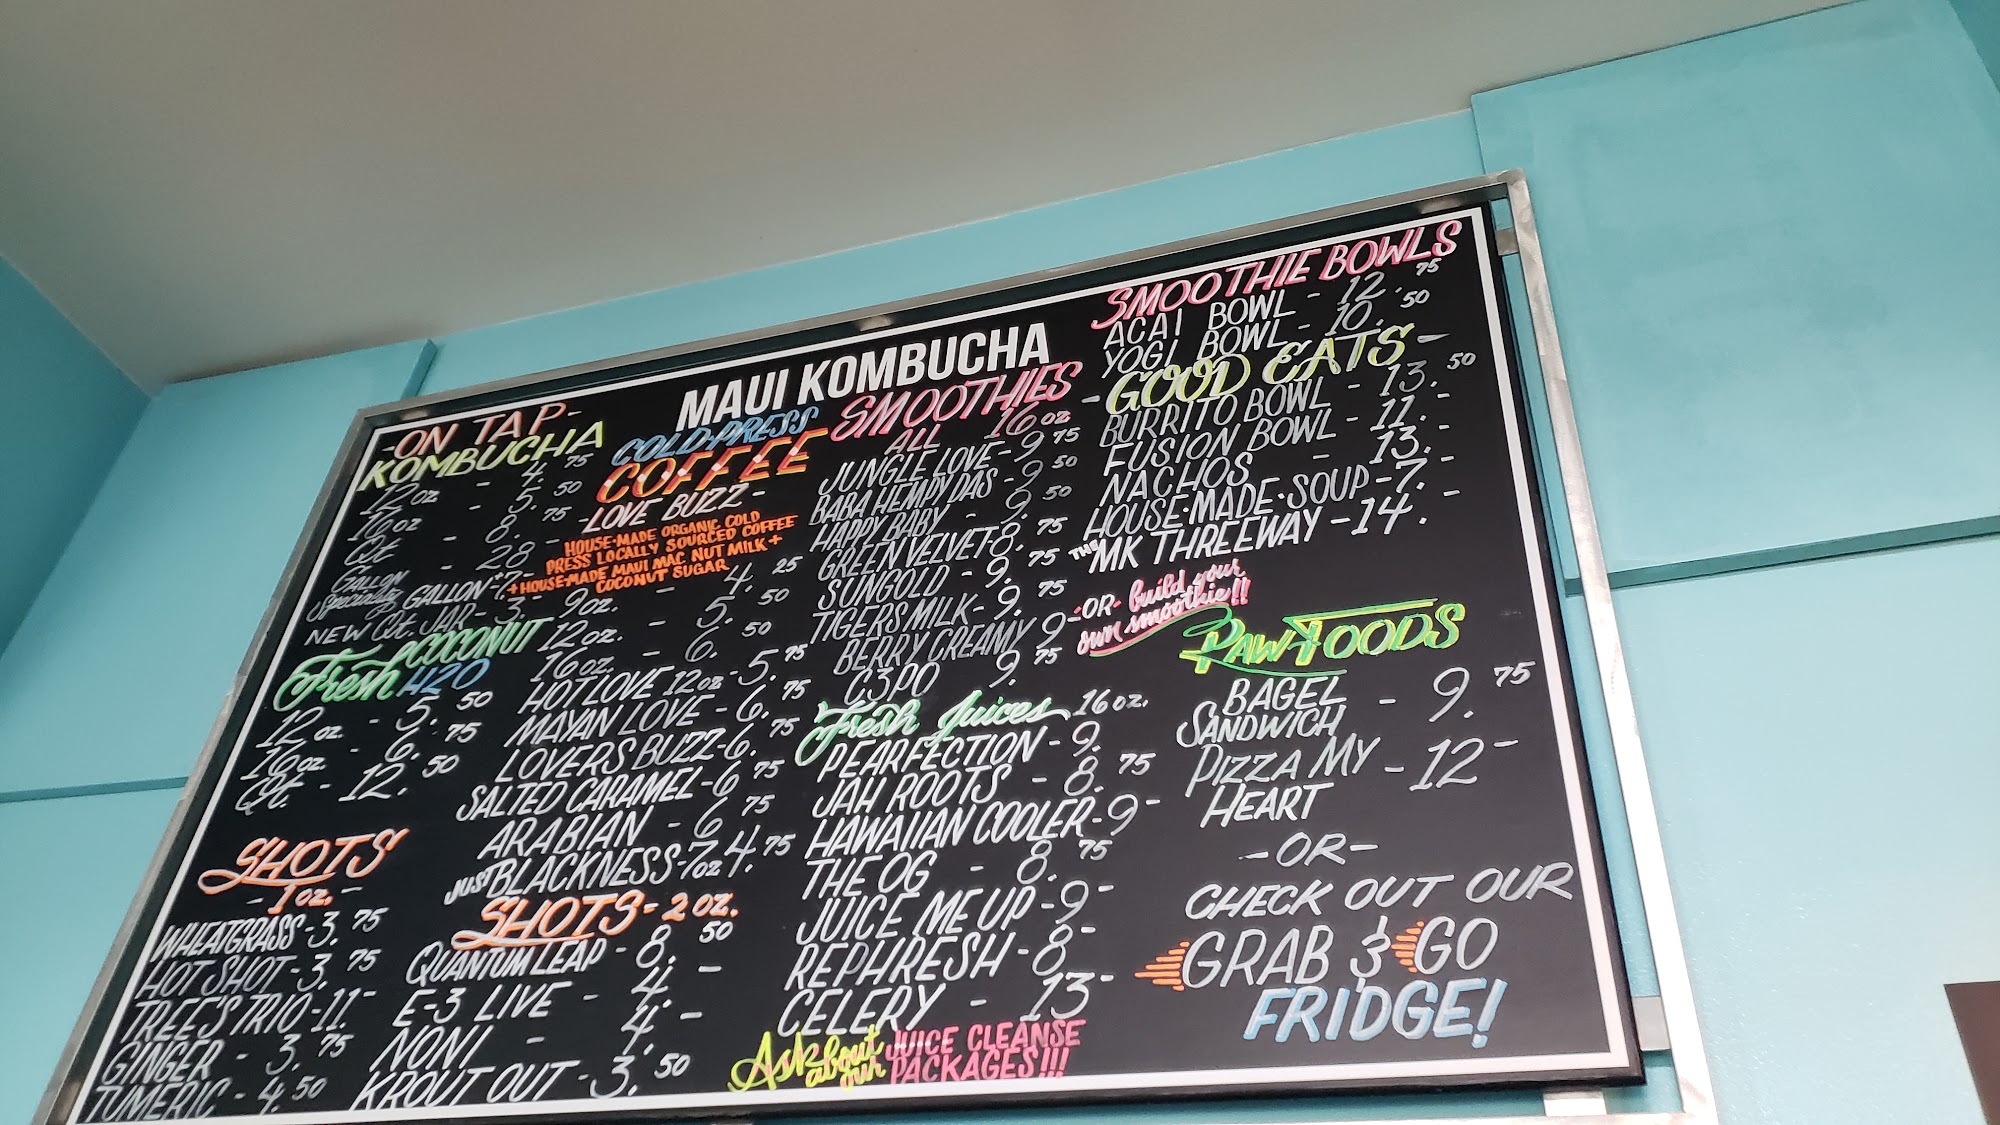 MAUI KOMBUCHA
-ON TAP-
KOMBUCHA
12oz - 4.75
16oz - 5.50
Qt. - 8.75
GALLON - 28-
Specialty GALLON +7-
NEW Qt. JAR - 3.-
Fresh COCONUT
H2O
12oz - 5.50
16oz - 6.75
Qt. - 12.50
SHOTS
-1oz.-
WHEATGRASS - 3.75
HOT SHOT - 3.75
TREE'S TRIO - 11.-
GINGER - 3.75
TUMERIC - 4.50
COLD-PRESS
COFFEE
-LOVE BUZZ-
HOUSE-MADE ORGANIC COLD
PRESS LOCALLY SOURCED COFFEE
+HOUSE-MADE MAUI MAC NUT MILK+
COCONUT SUGAR
9oz. - 4.25
12oz. - 5.50
16oz. - 6.50
HOT LOVE 12oz - 5.75
MAYAN LOVE - 6.75
LOVERS BUZZ - 6.75
SALTED CARAMEL - 6.75
ARABIAN - 6.75
JUST BLACKNESS - 7oz 4.75
SHOTS - 2oz.
QUANTUM LEAP - 8.50
E-3 LIVE - 4.-
NONI - 4.-
KROUT OUT - 3.50
SMOOTHIES
ALL 16oz
JUNGLE LOVE - 9.75
BABA HEMPY DAS - 9.50
HAPPY BABY - 9.50
GREEN VELVET - 8.75
SUNGOLD - 9.75
TIGERS MILK - 9.75
BERRY CREAMY 9-
C3PO 9.75
Fresh Juices 16oz.
PEARFECTION - 9.
JAH ROOTS - 8.75
HAWAIIAN COOLER - 9-
THE OG - 8.75
JUICE ME UP - 9-
REPHRESH - 8-
CELERY - 13-
Ask about our JUICE CLEANSE
PACKAGES!!!
SMOOTHIE BOWLS
ACAI BOWL - 12.75
YOGI BOWL - 10.50
-GOOD EATS-
BURRITO BOWL - 13.50
FUSION BOWL - 11.-
NACHOS - 13.-
HOUSE-MADE-SOUP - 7.-
THE MK THREEWAY - 14.-
-OR- build your
own smoothie!!
RAW FOODS
BAGEL
SANDWICH - 9.75
PIZZA MY
HEART - 12-
-OR-
CHECK OUT OUR
GRAB & GO
FRIDGE!